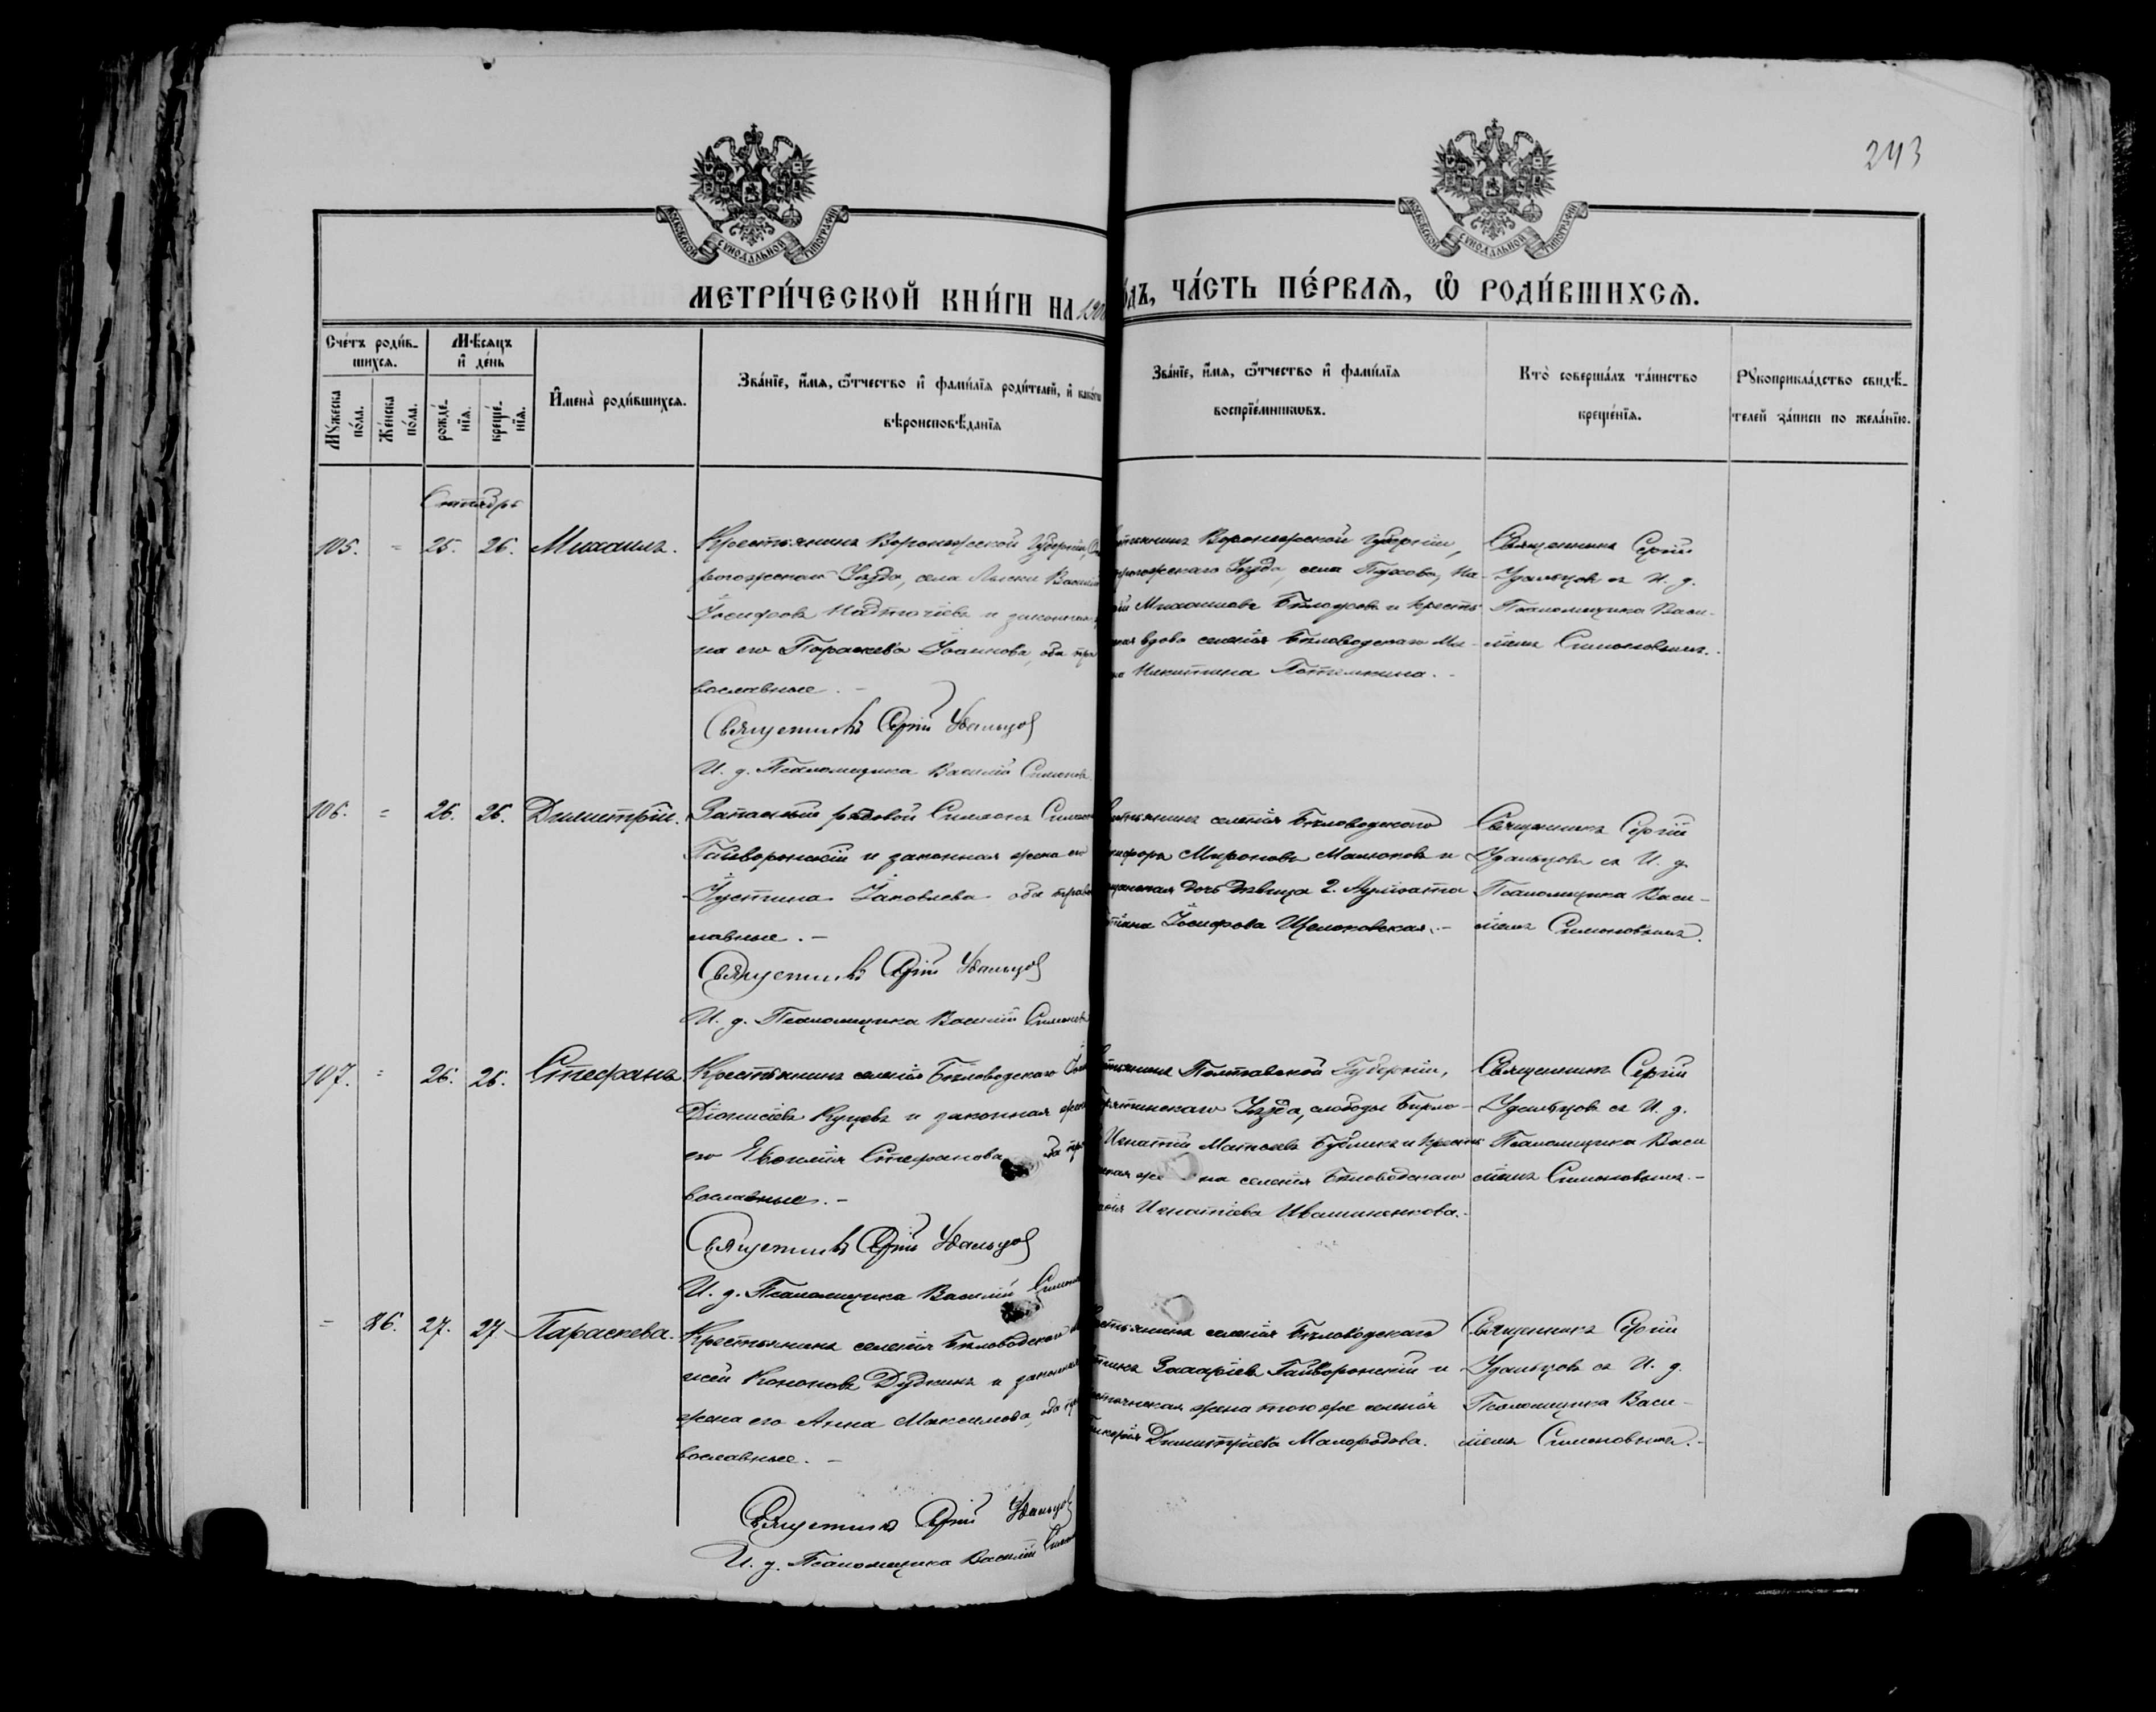 243
МОСКОВСКОЙ СѴНОДАЛЬНОЙ ТИПОГРАФІИ
МОСКОВСКОЙ СѴНОДАЛЬНОЙ ТИПОГРАФІИ
МЕТРИ́ЧЕСКОЙ КНИ́ГИ НА 190
ЧА́СТЬ ПЕ́РВАѦ, Ѡ РОДИ́ВШИХСѦ.
Сче́тъ роди́в-
шихсѧ.
Мꙋжеска по́ла.
Же́нска по́ла.
Мѣ́сѧцъ
и҆ де́нь
рожде́-
нїѧ.
креще́-
нїѧ.
И҆мена̀ роди́вшихсѧ.
Зва́нїе, и҆́мѧ, ѻ҆́тчество и҆ фами́лїѧ роди́телей, и҆
вѣроисповѣ́данїѧ
Зва́нїе, и҆́мѧ, ѻ҆́тчество и҆ фами́лїѧ
воспрїе́мникѡвъ.
Кто̀ соверша́лъ та́инство
креще́нїѧ.
Рꙋкоприкла́дство свидѣ́-
телей за́писи по жела́нїю.
Сентябрь
105. = 25. 26. Михаилъ.
Крестьянинъ Воронежской Губерніи,
Уѣзда, села Лыски
Іосифовъ Надточіевъ и законная
на его Параскева Іоаннова, оба пра
вославные. —
Священникъ Сергій Удальцов
И. д. Псаломщика Василій Симонов
Воронежской Губерніи,
Уѣзда, села Пухова,
Михаиловъ Бѣлоусовъ и кресть
вдова селенія Бѣловодскаго
Никитина Потемкина. -
Священникъ Сергій
Удальцовъ съ И. д.
Псаломщика Васи-
ліемъ Симоновымъ.
106. = 26. 26. Димитрій.
Запасный рядовой Симеонъ
Гайворонскій и законная жена его
Іустина Іаковлева оба правос
лавные. —
Священникъ Сергій Удальцов
И. д. Псаломщика Василій Симонов
селенія Бѣловодскаго
Мироновъ Малюковъ и
дочь дѣвица г.
Іосифова Щелоковская. —
Священникъ Сергій
Удальцовъ съ И. д.
Псаломщика Васи-
ліемъ Симоновымъ.
107. = 26. 26. Стефанъ.
Крестьянинъ селенія Бѣловодскаго
Діонисіевъ Куцевъ и законная жена
его Евфимія Стефанова, оба пра
вославные. —
Священникъ Сергій Удальцов
И. д. Псаломщика Василій Симонов
Полтавской Губерніи,
Уѣзда, слободы
Игнатій Матѳеевъ Бубликъ и кресть
жена селенія Бѣловодскаго
Игнатіева Ивашиненкова.
Священникъ Сергій
Удальцовъ съ И. д.
Псаломщика Васи
ліемъ Симоновымъ. —
= 86. 27. 27. Параскева.
Крестьянинъ селенія Бѣловодскаго
Кононовъ Дудкинъ и законная
жена его Анна Максимова, оба пра
вославные. —
Священникъ Сергій Удальцов
И. д. Псаломщика Василій
селенія Бѣловодскаго
Захаріевъ Гайворонскій и
жена того же селенія
Димитріева Малородова.
Священникъ Сергій
Удальцовъ съ И. д.
Псаломщика Васи-
ліемъ Симоновымъ. -